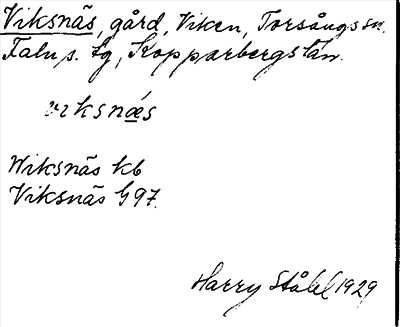 Viksnäs, gård, Viken, Torsångs sn.
Falu s. tg, Kopparbergs län.
viksnæs
Wiksnäs kb
Viksnäs G97.
Harry Ståhl 1929